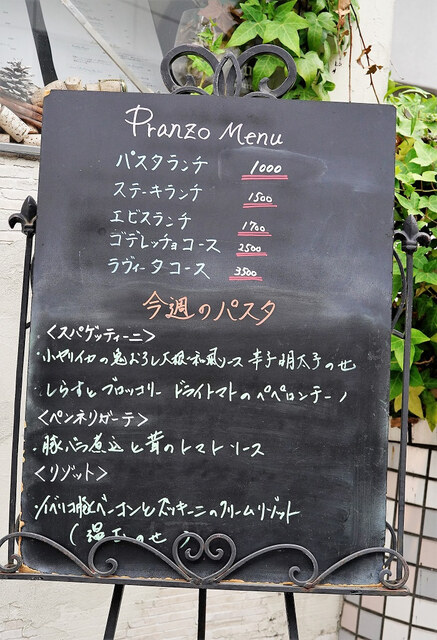 Pranzo Menu
パスタランチ 1000
ステーキランチ 1500
エビスランチ 1700
ゴデレッチョコース 2500
ラヴィータコース 3500
今週のパスタ
<スパゲッティーニ>
・小ヤリイカの鬼おろし大根・和風ソース 辛子明太子のせ
・しらすとブロッコリー ドライトマトのペペロンチーノ
<ペンネリガーテ>
・豚バラ煮込と茸のトマトソース
<リゾット>
・イベリコ豚ベーコンとズッキーニのクリームリゾット
(温玉のせ)